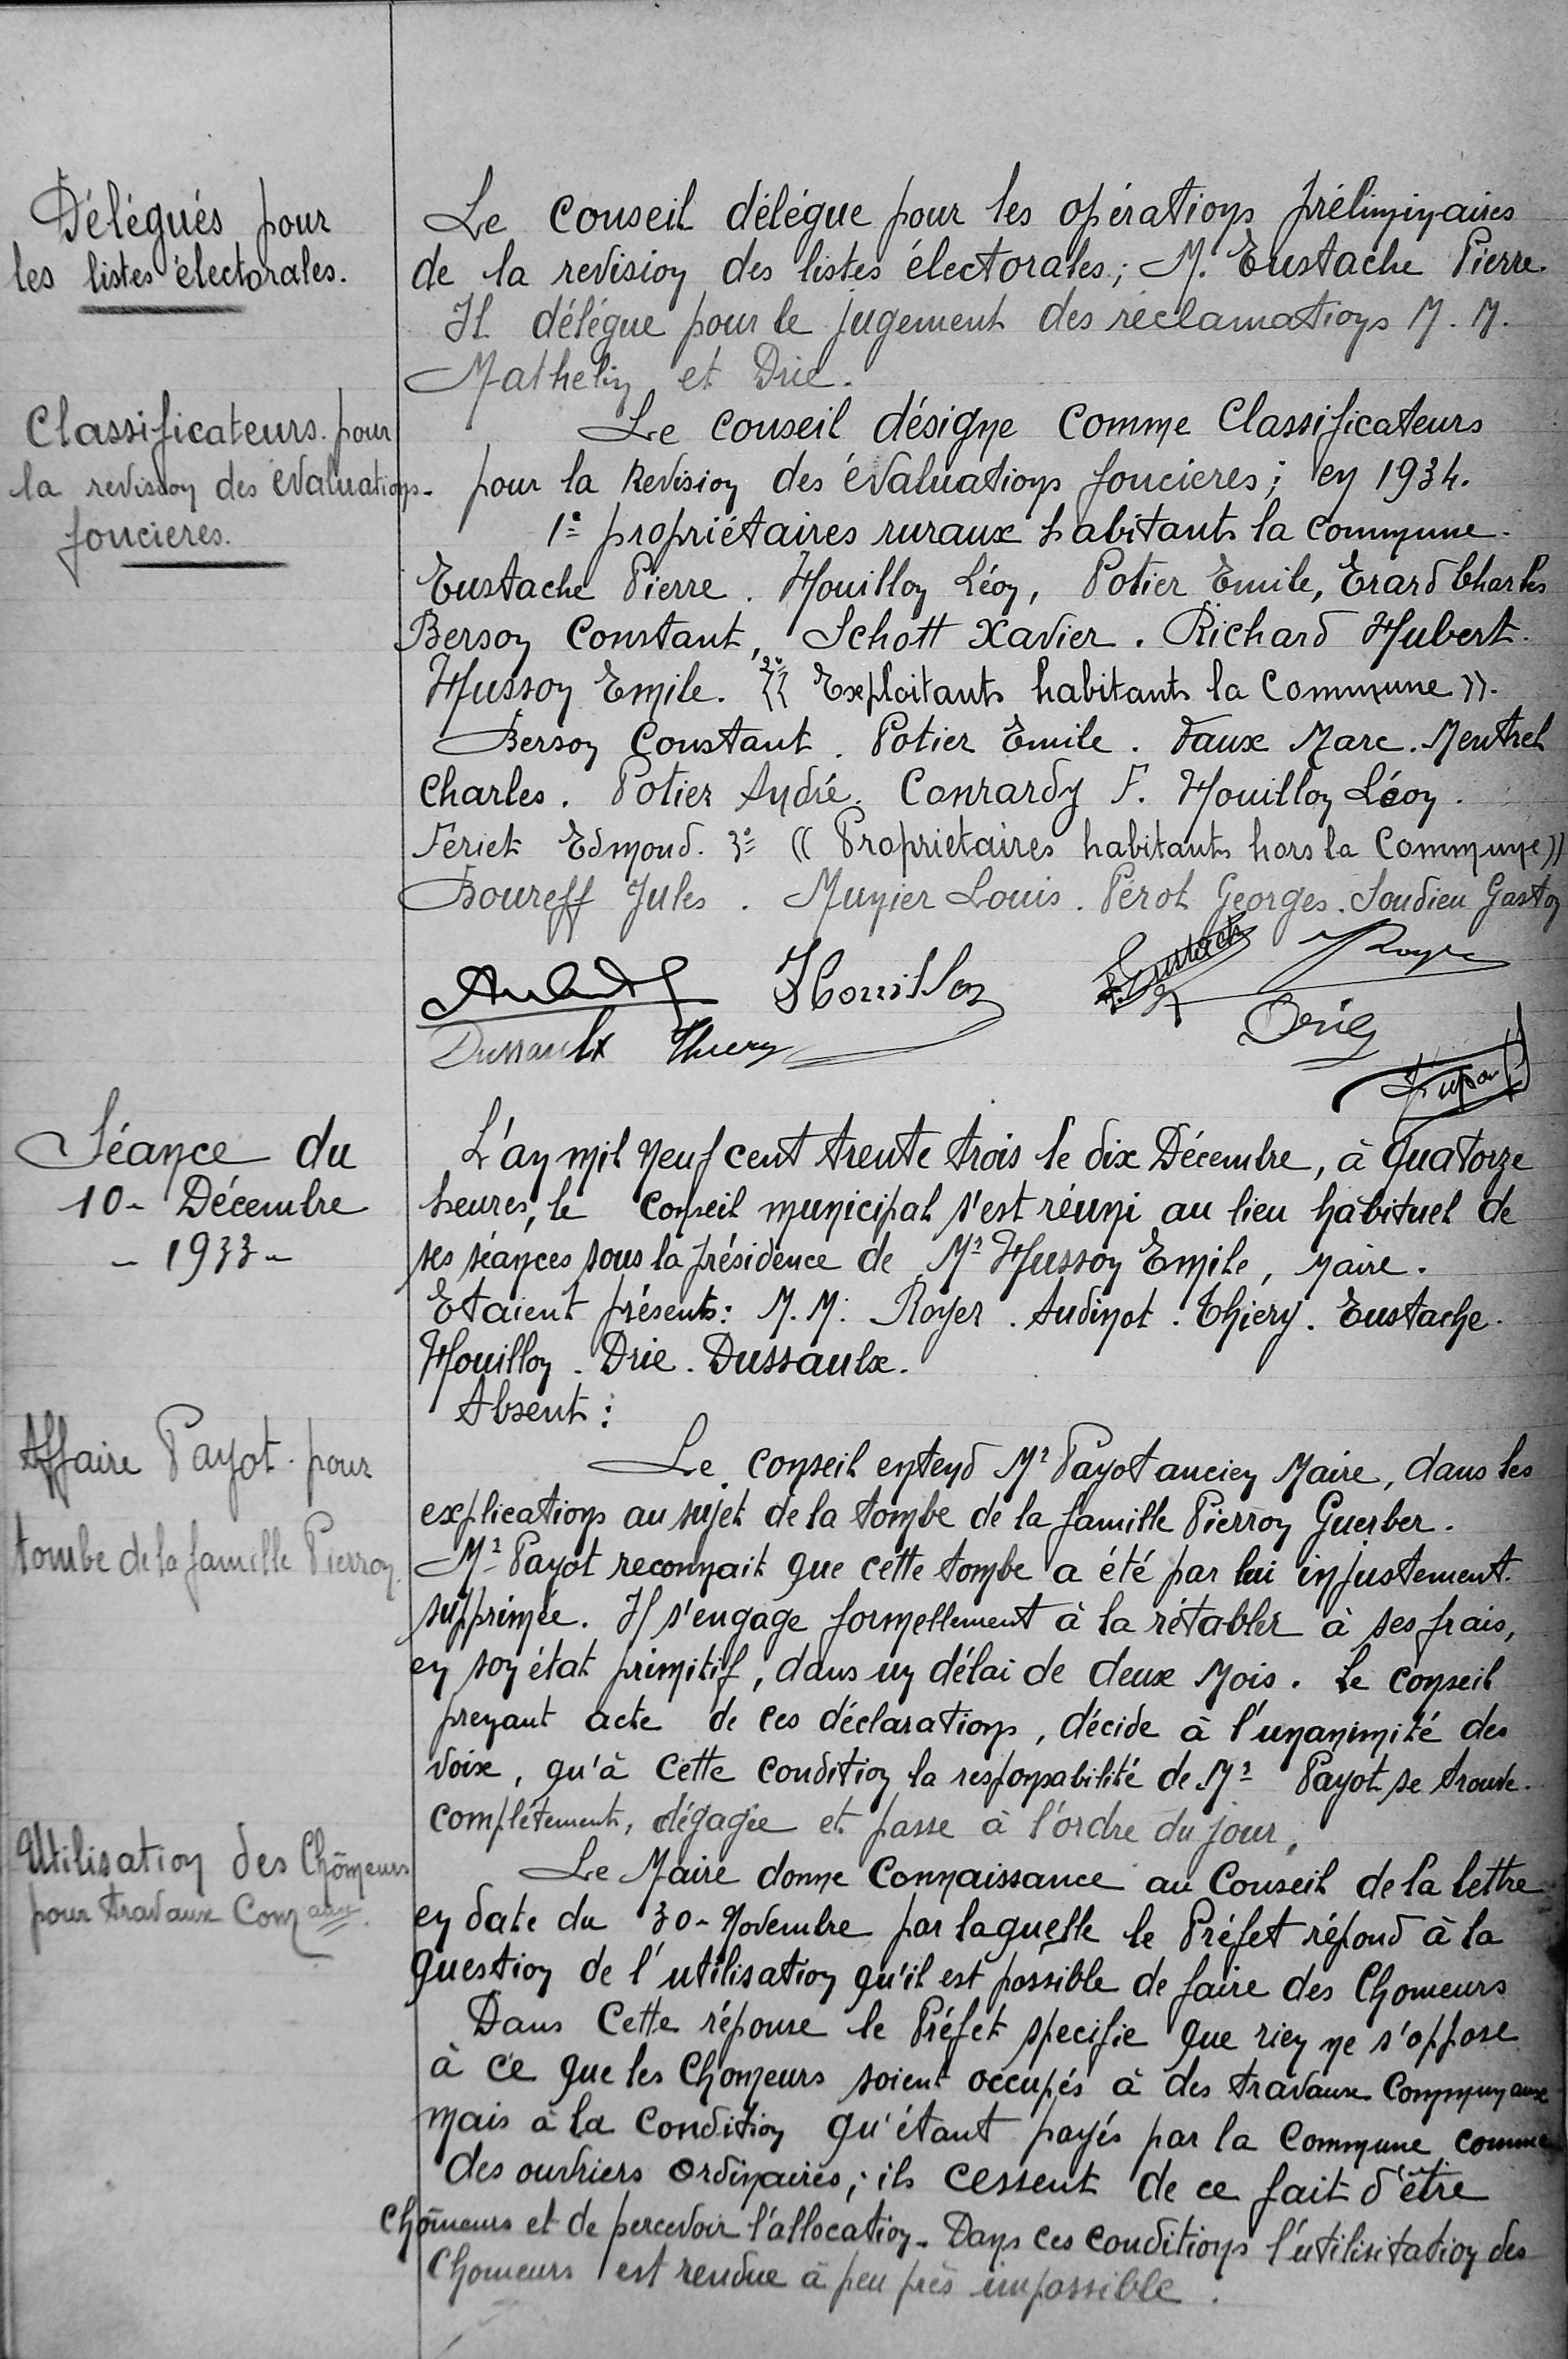 Délégués pour
les listes électorales.
Le conseil délégue pour les opérations préliminaires
de la revision des listes électorales; M. Eustache Pierre.
Il délégue pour le jugement des réclamations M. M.
Mathelin et Drie.
Classificateurs pour
la revision des evaluations
foncieres.
Le conseil désigne comme Classificateurs
pour la Revision des évaluations foncieres; en 1934.
1º propriétaires ruraux habitants la commune.
Eustache Pierre. Houillon Léon, Potier Emile, Erard Charles
Berson Constant, Schott Xavier. Richard Hubert.
Husson Emile. 2º (( Exploitants habitants la Commune )).
Berson Constant. Potier Emile. Vaux Marc. Mentrel
Charles. Potier André. Conrardy F. Houillon Léon.
Feriet Edmond. 3º (( Proprietaires habitants hors la Commune ))
Boureff Jules. Munier Louis. Perot Georges. Soudieu Gaston
Houillon Eustache Royer
Dussaulx Thiery Drie
Séance du
10- Décembre
- 1933 -
L'an mil neuf cent trente trois le dix Décembre, à quatorze
heures, le conseil municipal s'est réuni au lieu habituel de
ses séances sous la présidence de Mr Husson Emile, maire.
Etaient présents: M. M. Royer. Audinot. Thiery. Eustache.
Houillon. Drie. Dussaulx.
Absent:
Affaire Payot pour
tombe de la famille Pierron.
Le conseil entend Mr Payot ancien Maire, dans les
explications au sujet de la tombe de la famille Pierron Guerber.
Mr Payot reconnait que cette tombe a été par lui injustement
supprimée. Il s'engage formellement à la rétablir à ses frais,
en son état primitif, dans un délai de deux mois. Le conseil
prenant acte de ces déclarations, décide à l'unanimité des
voix, qu'à cette condition la responsabilité de Mr Payot se trouve
complétement, dégagée et passe à l'ordre du jour.
Utilisation des Chômeurs
pour travaux Comaux.
Le Maire donne Connaissance au Conseil de la lettre
en date du 30- Novembre par laquelle le Préfet répond à la
question de l'utilisation qu'il est possible de faire des Chomeurs
Dans Cette réponse le Préfet specifie que rien ne s'oppose
à ce que les Chomeurs soient occupés à des travaux Communaux
mais à la condition qu'étant payés par la Commune comme
des ouvriers ordinaires; ils cessent de ce fait d'être
chômeurs et de percevoir l'allocation. Dans ces conditions l'utilisitation des
Chomeurs est rendue à peu près impossible.